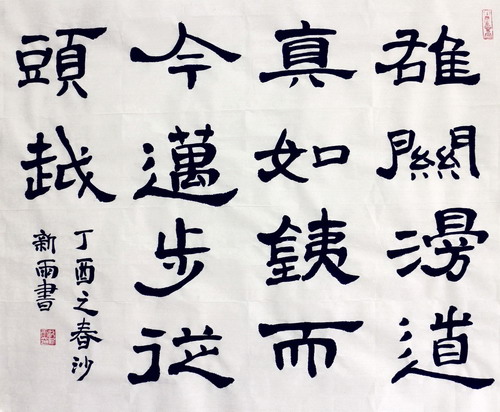 雄關漫道
真如鐵而
今邁步從
頭越
丁酉之春沙
新雨書